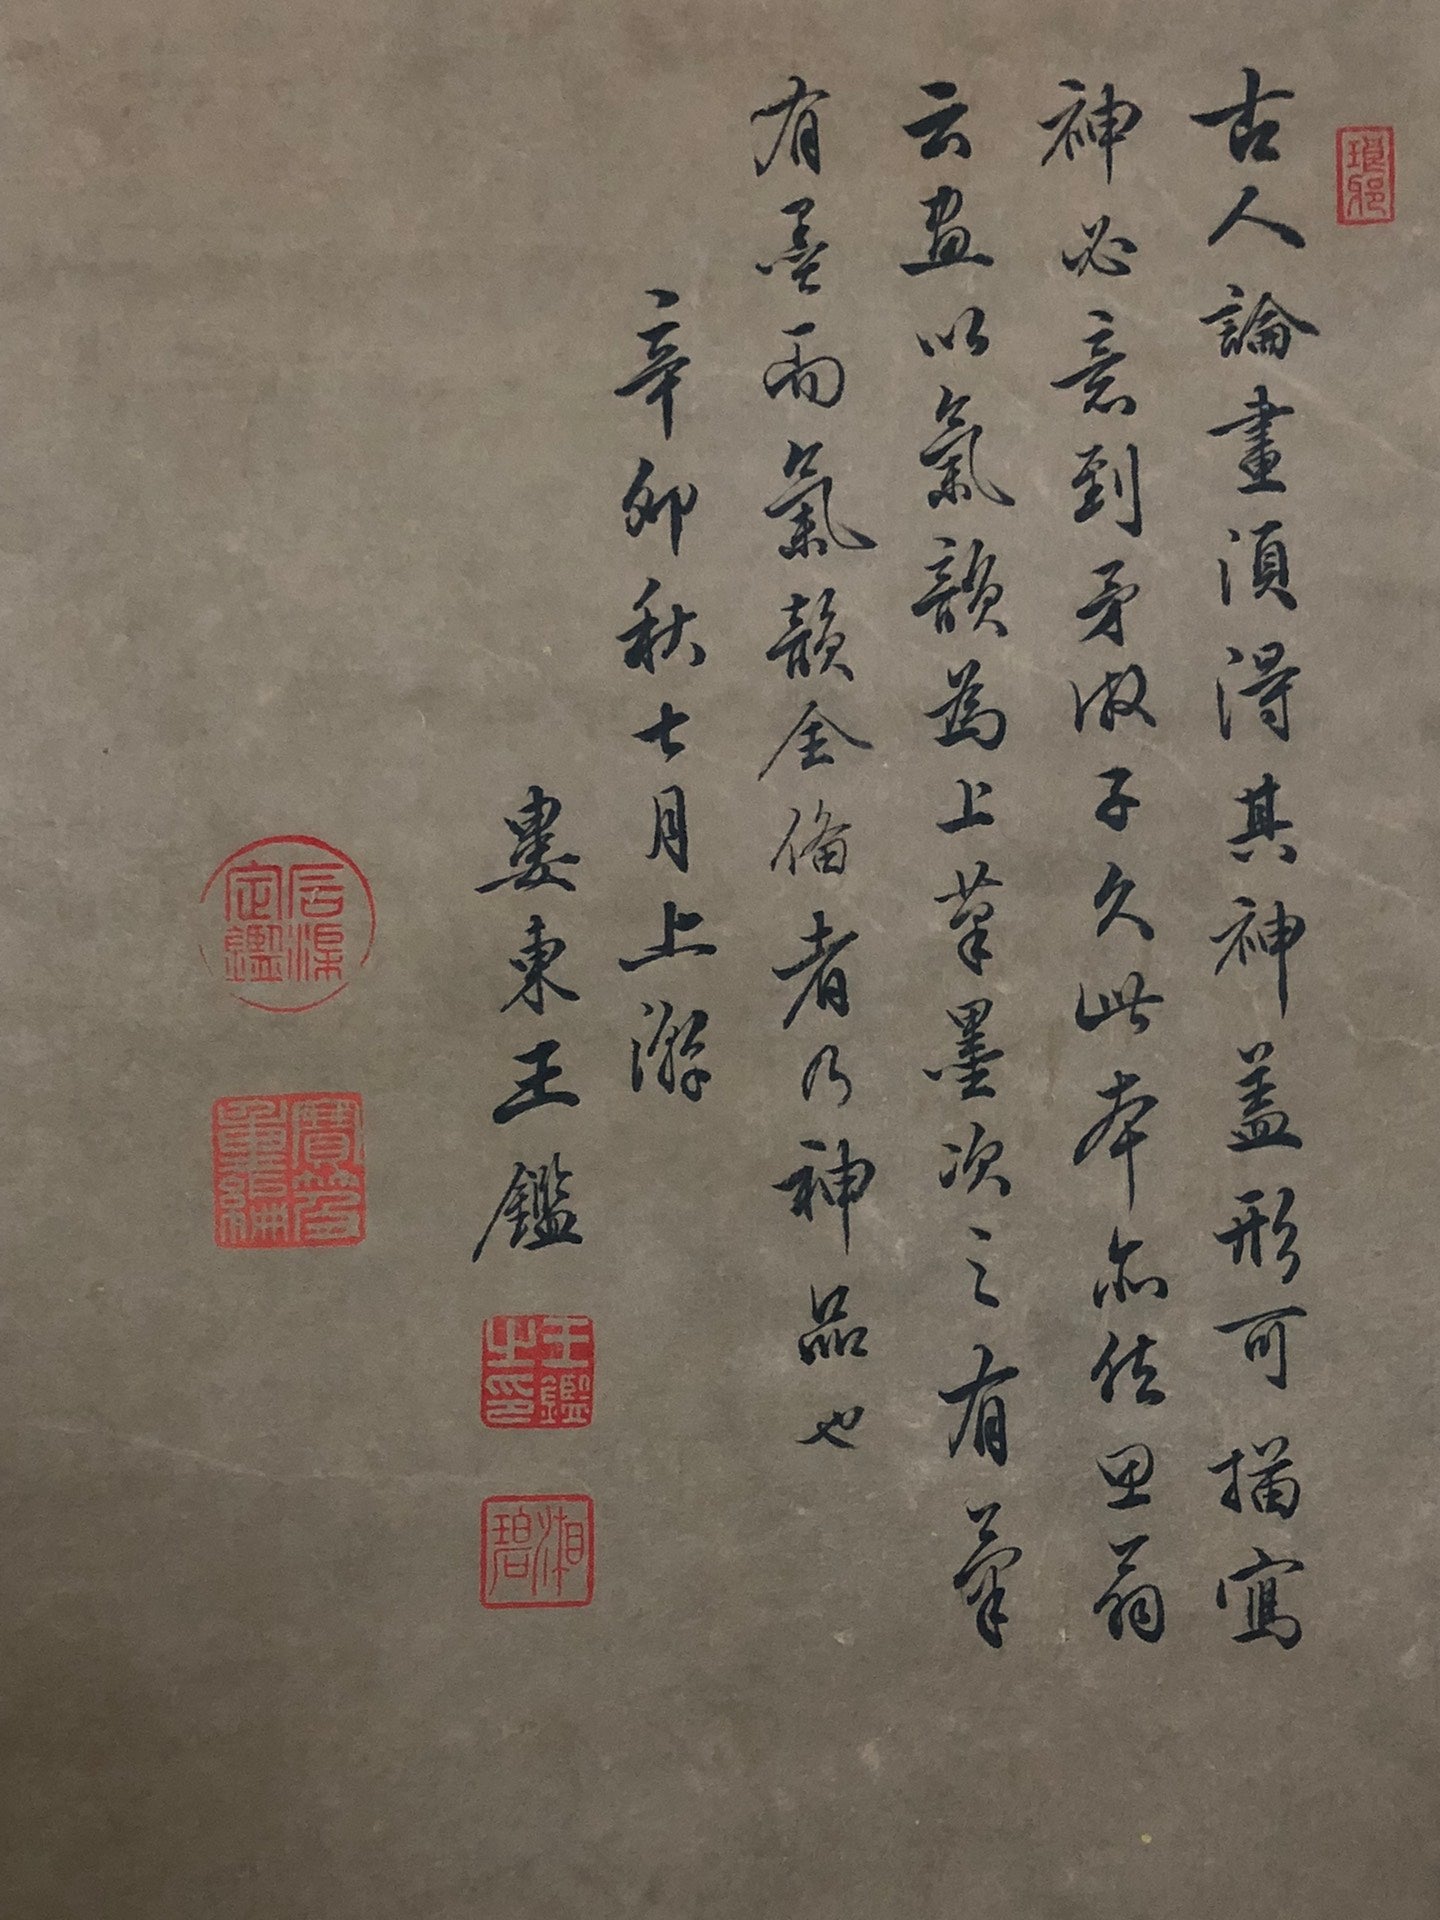 琅邪
古人論畫須得其神蓋形可描寫
神必意到子久此本亦法思翁
云畫以氣韻為上筆墨次之有筆
有墨而氣韻全備者乃神品也
辛卯秋七月上澣
婁東王鑑
王鑑之印
湘碧
石渠定鑑
寶笈重編